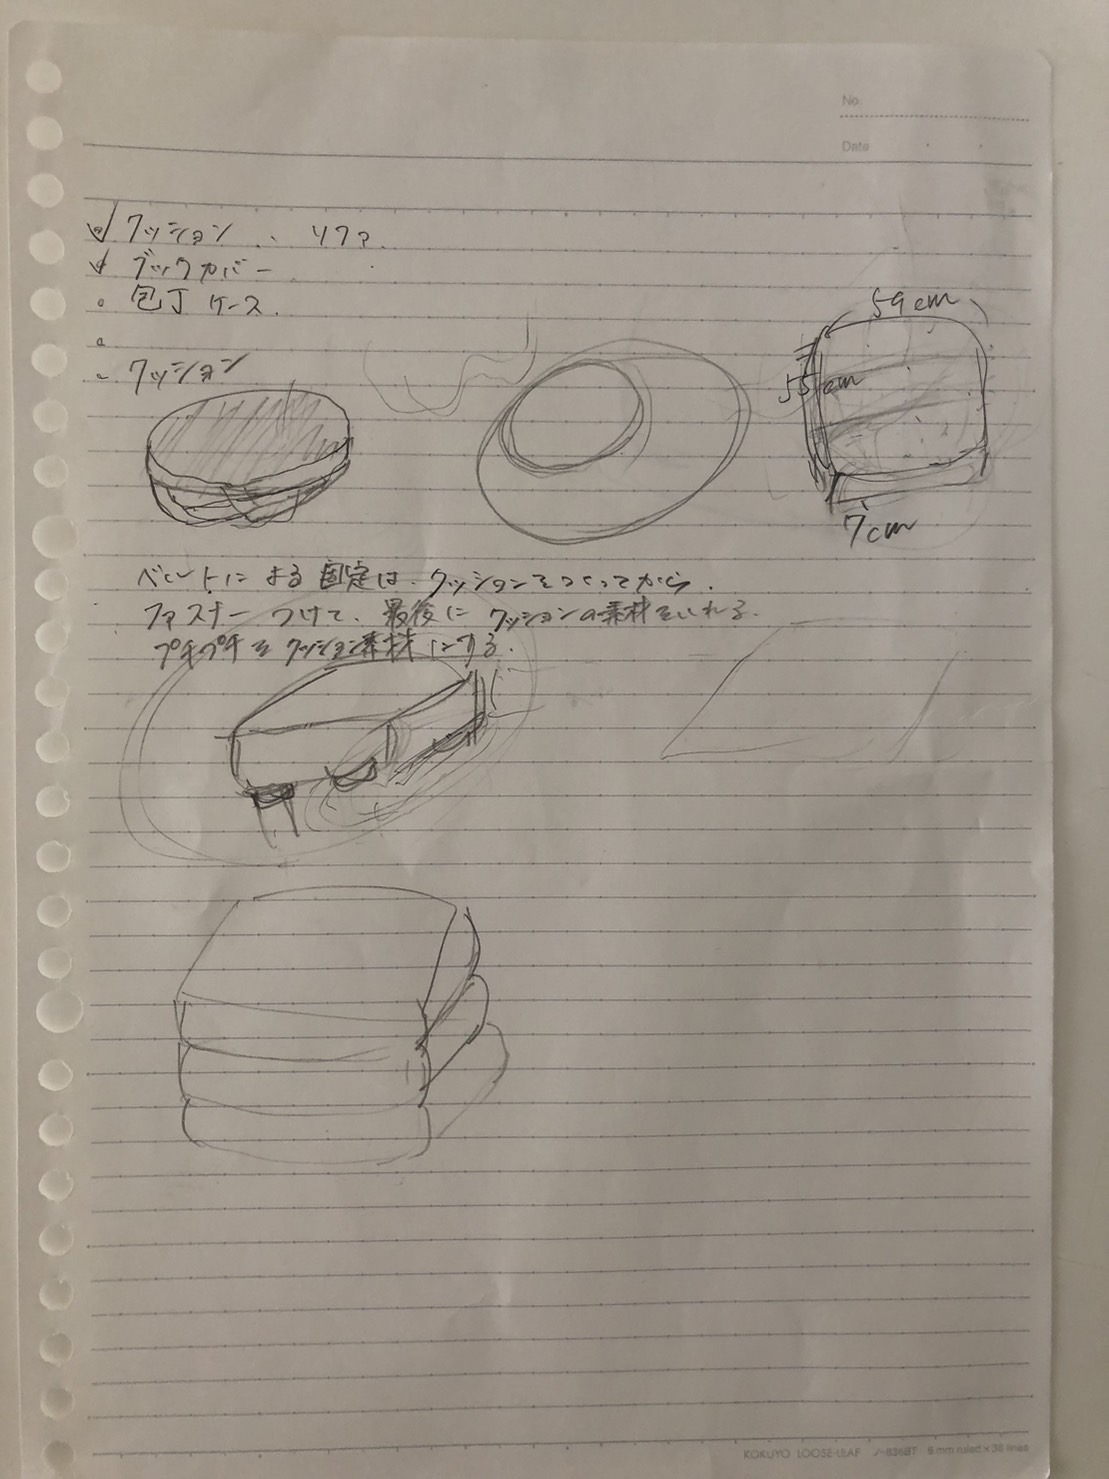 No.
Date
クッション
ブックカバー
包丁ケース.
クッション
59cm
55cm
7cm
ベルトによる固定は、クッションをつくってから.
ファスナーつけて、最後にクッションの素材をいれる.
プチプチをクッション素材にする.
KOKUYO LOOSE-LEAF ノ-836BT 6 mm ruled×36 lines